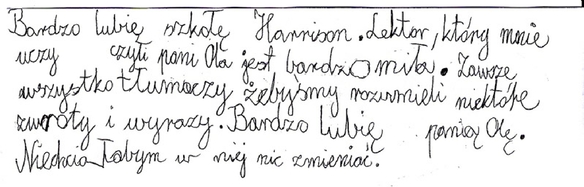 Bardzo lubię szkołę Harrison. Lektor, który mnie
uczy czyli pani Ola jest bardzo miła. Zawsze
wszystko tłumaczy żebyśmy rozumieli niektóre
zwroty i wyrazy. Bardzo lubię panią Olę.
Niechciałabym w niej nic zmieniać.